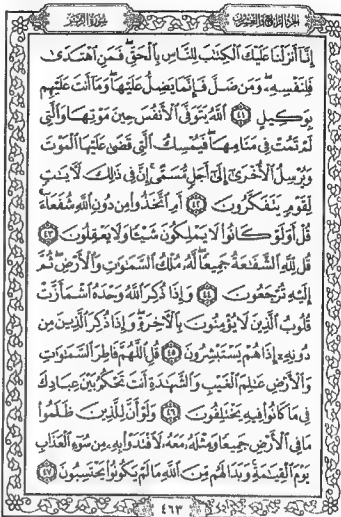 الجزء الرابع والعشرون سورة الزمر
إِنَّا أَنزَلْنَا عَلَيْكَ الْكِتَٰبَ لِلنَّاسِ بِالْحَقِّ فَمَنِ اهْتَدَىٰ
فَلِنَفْسِهِۦ وَمَن ضَلَّ فَإِنَّمَا يَضِلُّ عَلَيْهَا وَمَا أَنتَ عَلَيْهِم
بِوَكِيلٍ ٤١ اللَّهُ يَتَوَفَّى الْأَنفُسَ حِينَ مَوْتِهَا وَالَّتِى
لَمْ تَمُتْ فِى مَنَامِهَا فَيُمْسِكُ الَّتِى قَضَىٰ عَلَيْهَا الْمَوْتَ
وَيُرْسِلُ الْأُخْرَىٰ إِلَىٰ أَجَلٍ مُّسَمًّى إِنَّ فِى ذَٰلِكَ لَءَايَٰتٍ
لِّقَوْمٍ يَتَفَكَّرُونَ ٤٢ أَمِ اتَّخَذُوا مِن دُونِ اللَّهِ شُفَعَاءَ
قُلْ أَوَلَوْ كَانُوا لَا يَمْلِكُونَ شَيْـًٔا وَلَا يَعْقِلُونَ ٤٣
قُل لِّلَّهِ الشَّفَٰعَةُ جَمِيعًا لَّهُۥ مُلْكُ السَّمَٰوَٰتِ وَالْأَرْضِ ثُمَّ
إِلَيْهِ تُرْجَعُونَ ٤٤ وَإِذَا ذُكِرَ اللَّهُ وَحْدَهُ اشْمَأَزَّتْ
قُلُوبُ الَّذِينَ لَا يُؤْمِنُونَ بِالْءَاخِرَةِ وَإِذَا ذُكِرَ الَّذِينَ مِن
دُونِهِۦ إِذَا هُمْ يَسْتَبْشِرُونَ ٤٥ قُلِ اللَّهُمَّ فَاطِرَ السَّمَٰوَٰتِ
وَالْأَرْضِ عَٰلِمَ الْغَيْبِ وَالشَّهَٰدَةِ أَنتَ تَحْكُمُ بَيْنَ عِبَادِكَ
فِى مَا كَانُوا فِيهِ يَخْتَلِفُونَ ٤٦ وَلَوْ أَنَّ لِلَّذِينَ ظَلَمُوا
مَا فِى الْأَرْضِ جَمِيعًا وَمِثْلَهُۥ مَعَهُۥ لَافْتَدَوْا بِهِۦ مِن سُوءِ الْعَذَابِ
يَوْمَ الْقِيَٰمَةِ وَبَدَا لَهُم مِّنَ اللَّهِ مَا لَمْ يَكُونُوا يَحْتَسِبُونَ ٤٧
٤٦٣